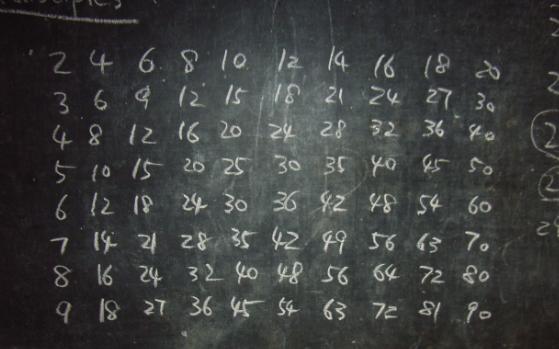 2 4 6 8 10 12 14 16 18 20
3 6 9 12 15 18 21 24 27 30
4 8 12 16 20 24 28 32 36 40
5 10 15 20 25 30 35 40 45 50
6 12 18 24 30 36 42 48 54 60
7 14 21 28 35 42 49 56 63 70
8 16 24 32 40 48 56 64 72 80
9 18 27 36 45 54 63 72 81 90